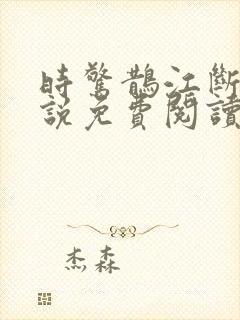 時驚鵲江斷
說免費閱讀
杰森